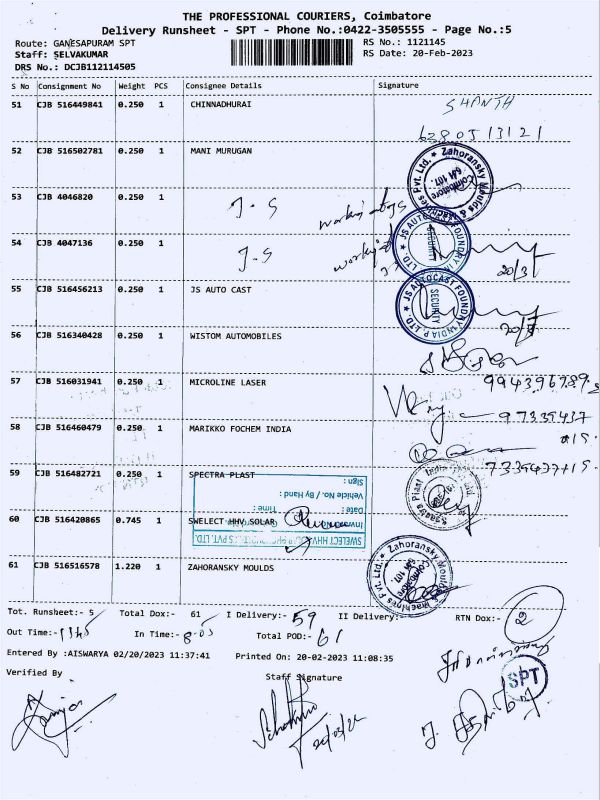 THE PROFESSIONAL COURIERS, Coimbatore
Delivery Runsheet - SPT - Phone No.:0422-3505555 - Page No.:5
Route: GANESAPURAM SPT RS No.: 1121145
Staff: SELVAKUMAR RS Date: 20-Feb-2023
DRS No.: DCJB112114505
S No Consignment No Weight PCS Consignee Details Signature
51 CJB 516449841 0.250 1 CHINNADHURAI SHANTH
6380513121
52 CJB 516502781 0.250 1 MANI MURUGAN
Zahoransky Moulds & Machines Pvt. Ltd. Coimbatore 641 107.
53 CJB 4046820 0.250 1 J-S
54 CJB 4047136 0.250 1 J-S
JS AUTOCAST FOUNDRY INDIA P. LTD. SECURITY
20/3
55 CJB 516456213 0.250 1 JS AUTO CAST
JS AUTOCAST FOUNDRY INDIA P. LTD. SECURITY
56 CJB 516340428 0.250 1 WISTOM AUTOMOBILES
57 CJB 516031941 0.250 1 MICROLINE LASER
58 CJB 516460479 0.250 1 MARIKKO FOCHEM INDIA
59 CJB 516482721 0.250 1 SPECTRA PLAST
Sign :
Vehicle No. / By Hand :
Time :
Date :
60 CJB 516420865 0.745 1 SWELECT HHV SOLAR
61 CJB 516516578 1.220 1 ZAHORANSKY MOULDS
Zahoransky Moulds & Machines Pvt. Ltd. Coimbatore
Tot. Runsheet:- 5 Total Dox:- 61 I Delivery:- 59 II Delivery:- RTN Dox:- 2
Out Time:- 1145 In Time:- 8.05 Total POD:- 61
Entered By :AISWARYA 02/20/2023 11:37:41 Printed On: 20-02-2023 11:08:35
Verified By Staff Signature
SPT